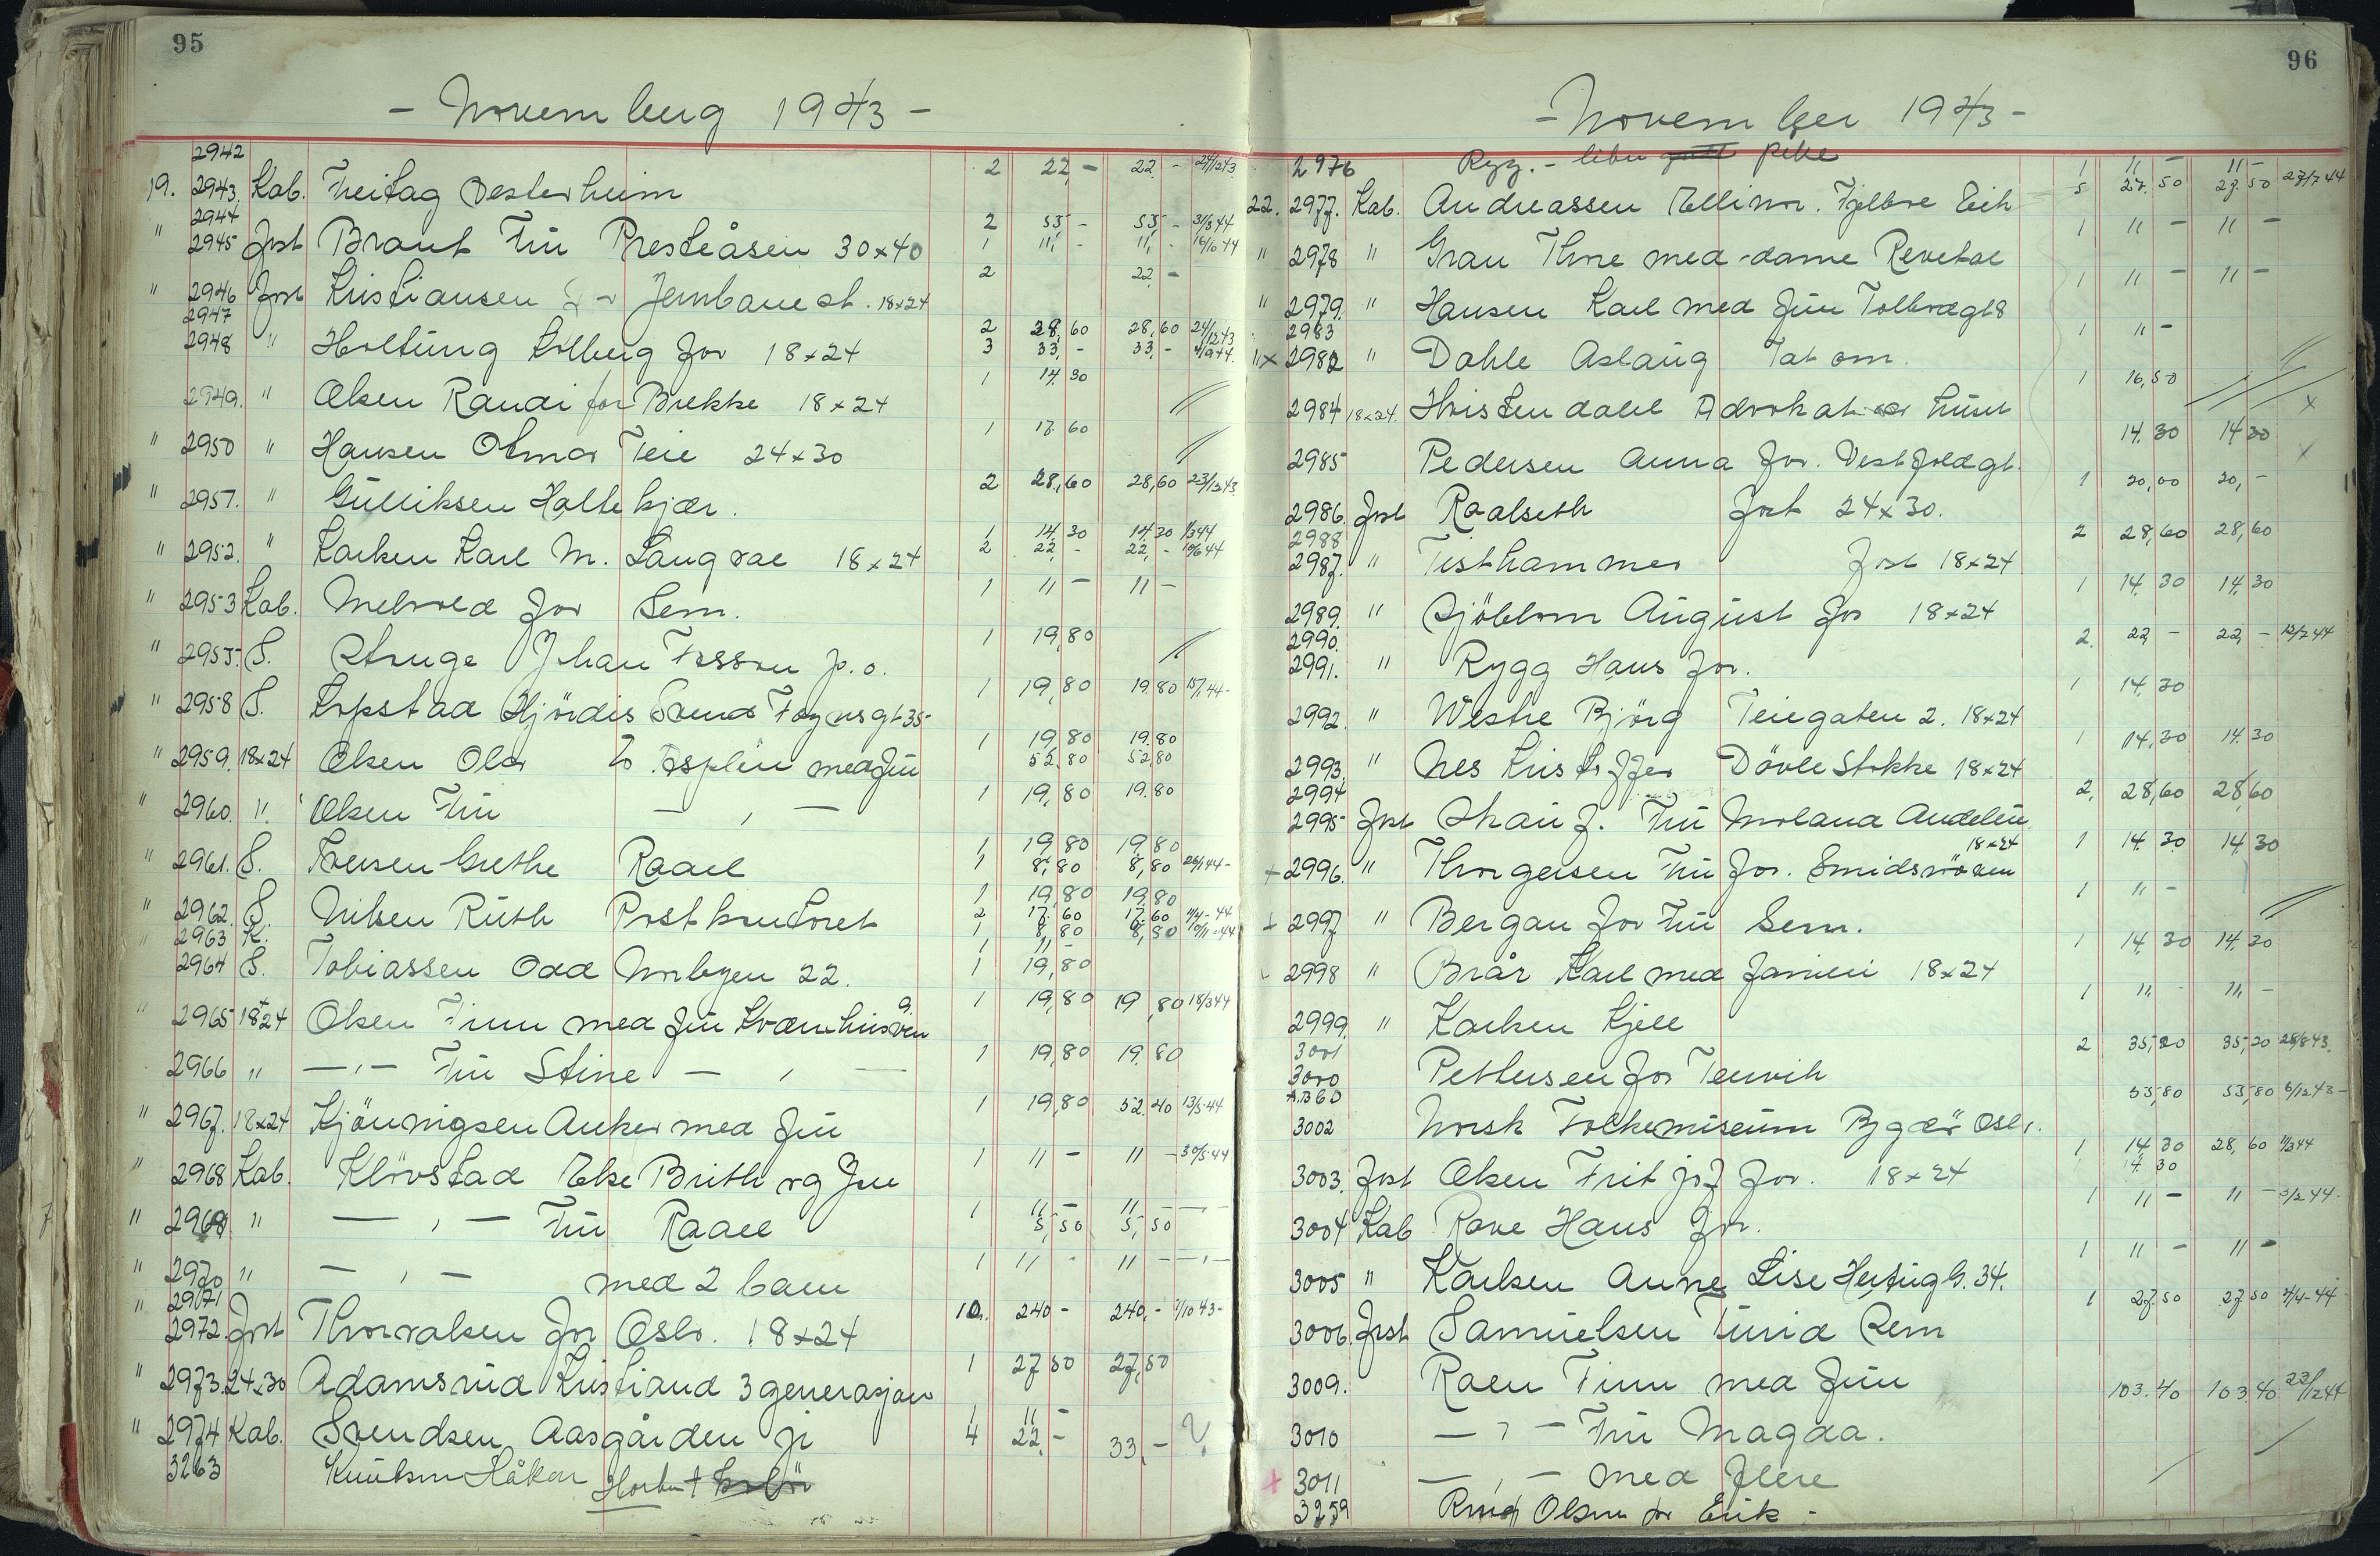 95
- November 1943 -
2942 2 22,- 22,- 24/12 43
19. 2943. Kab. Freitag Vesterheim
2944 2 55 - 55,- 31/3 44
" 2945 Post Braut Fru Presteåsen 30x40 1 11,- 11,- 16/10 44
2 22 -
" 2946 Post Kristiansen Jernbane st. 18x24
2947 2 28,60 28,60 24/12 43
2948 " Holtung Solberg for 18x24 3 33,- 33,-
1 14,30
2949. " Olsen Randi for Brekke 18x24
1 17.60
" 2950 " Hansen Otmar Teie 24x30
2 28,60 28,60 23/12 43
" 2951. " Gulliksen Holtekjær.
1 14,30 14,30 1/3 44
" 2952. " Karlsen Karl M. Langvae 18x24 2 22,- 22,- 10/6 44
1 11 - 11 -
" 2953 Kab. Melvold for Sem.
1 19,80
" 2955. S. Stange Johan Fossen p.o.
1 19,80 19.80
" 2958 S. Kopstad Hjördis Svend Foynsgt 35
1 19,80 19.80
" 2959. 18x24 Olsen Olav Asplin med fru 52,80 52,80
1 19,80 19.80
" 2960. " Olsen Fru — , —
1 19,80 19,80
" 2961. S. Iversen Grethe Raael 1 8,80 8,80
1 19,80 19,80
" 2962. S. Nilsen Ruth Postkontoret 2 17.60 17.60
" 2963 K. 1 8,80 8,80
1 11 -
2964 S. Tobiassen Odd Norbyen 22. 1 19,80
1 19,80 19,80 18/3 44
" 2965 18x24 Olsen Finn med fru Kvernhusveien
1 19,80 19.80
2966 " — , — Fru Stine — , —
1 19,80 52,40 13/5-44
" 2967. 18x24 Kjönnigsen Anker med fru
1 11 - 11 - 30/5-44
" 2968 Kab. Klövstad Else Brith og Jen
1 11 - 11 -
" 2969 " — , — Fru Raael 5,50 5,50
1 11 - 11 -
" 2970 " — , — med 2 barn
" 2971 10. 240 - 240,-
2972. Post Thorvalsen for Oslo. 18x24
1 27,50 27,50
" 2973. 24x30 Adamsrud Kristiand 3 generasjon
1 11 -
" 2974 Kab. Svendsen Aasgården fr 4 22 - 33,- ?
3263 Knutsen Håkon Horten
96
- November 1943 -
2976 Rygg. - liten pike 1 11 - 11 -
5 27.50 27.50 27/7 44
22. 2977. Kab. Andreassen Ellinor. Fjelbae Eik
1 11 - 11 -
" 2978 " Grau Thore med dame Revetal
1 11 - 11 -
" 2979. " Hansen Karl med fru Tolbodgt 8
2983 1 11 -
" x 2982 " Dahle Aslaug Tat om.
1 16,50
2984 18x24. Hvistendahl Advokat
14.30 14.30
2985 Pedersen Anna for. Vestfoldgt.
1 20,00 20,-
2986. Post Raalseth Post 24x30.
2988 2 28,60 28,60
2987. " Tisthammer Post 18x24
1 14.30 14.30
2989. " Sjöblom August for 18x24
2990. 2. 22,- 22,- 12/2 44
2991. " Rygg Hans for.
1 14.30
2992. " Westre Björg Teiegaten 2. 18x24
1 14.30 14.30
2993. " Nes Kristoffer Dövle Stokke 18x24
2994 2, 28,60 28,60
2995 Post Skau J. Fru Moland Andebu
18x24 1 14.30 14.30
+ 2996. " Thorgersen Fru for. Smidsröden
1 11 -
+ 2997 " Bergan for Fru Sem.
1 14.30 14.30
2998 " Braar Karl med familie 18x24
1 11,- 11,-
2999. " Karlsen Kjell
3001 2 35,20 35,20 28/8 43.
3000 Pettersen for Tenvik
A.B 60 53,80 53,80 6/12 43 -
3002 Norsk Folkemuseum Bygdö Oslo.
1 14.30 28,60 11/3 44
3003. Post Olsen Fritjof for. 18x24 14.30
1 11 - 11 - 5/2 44.
3004 Kab Rove Hans for.
1 11 - 11 -
3005 " Karlsen Anne Lise Hertug G. 34.
1 27.50 27.50 4/4-44
3006. Post Samuelsen Turid Rem
3009. Roen Finn med fru 103.40 103.40 23/12 44
3010 — , — Fru Magda.
+ 3011 — , — med flere
3259 Olsen for Erik -